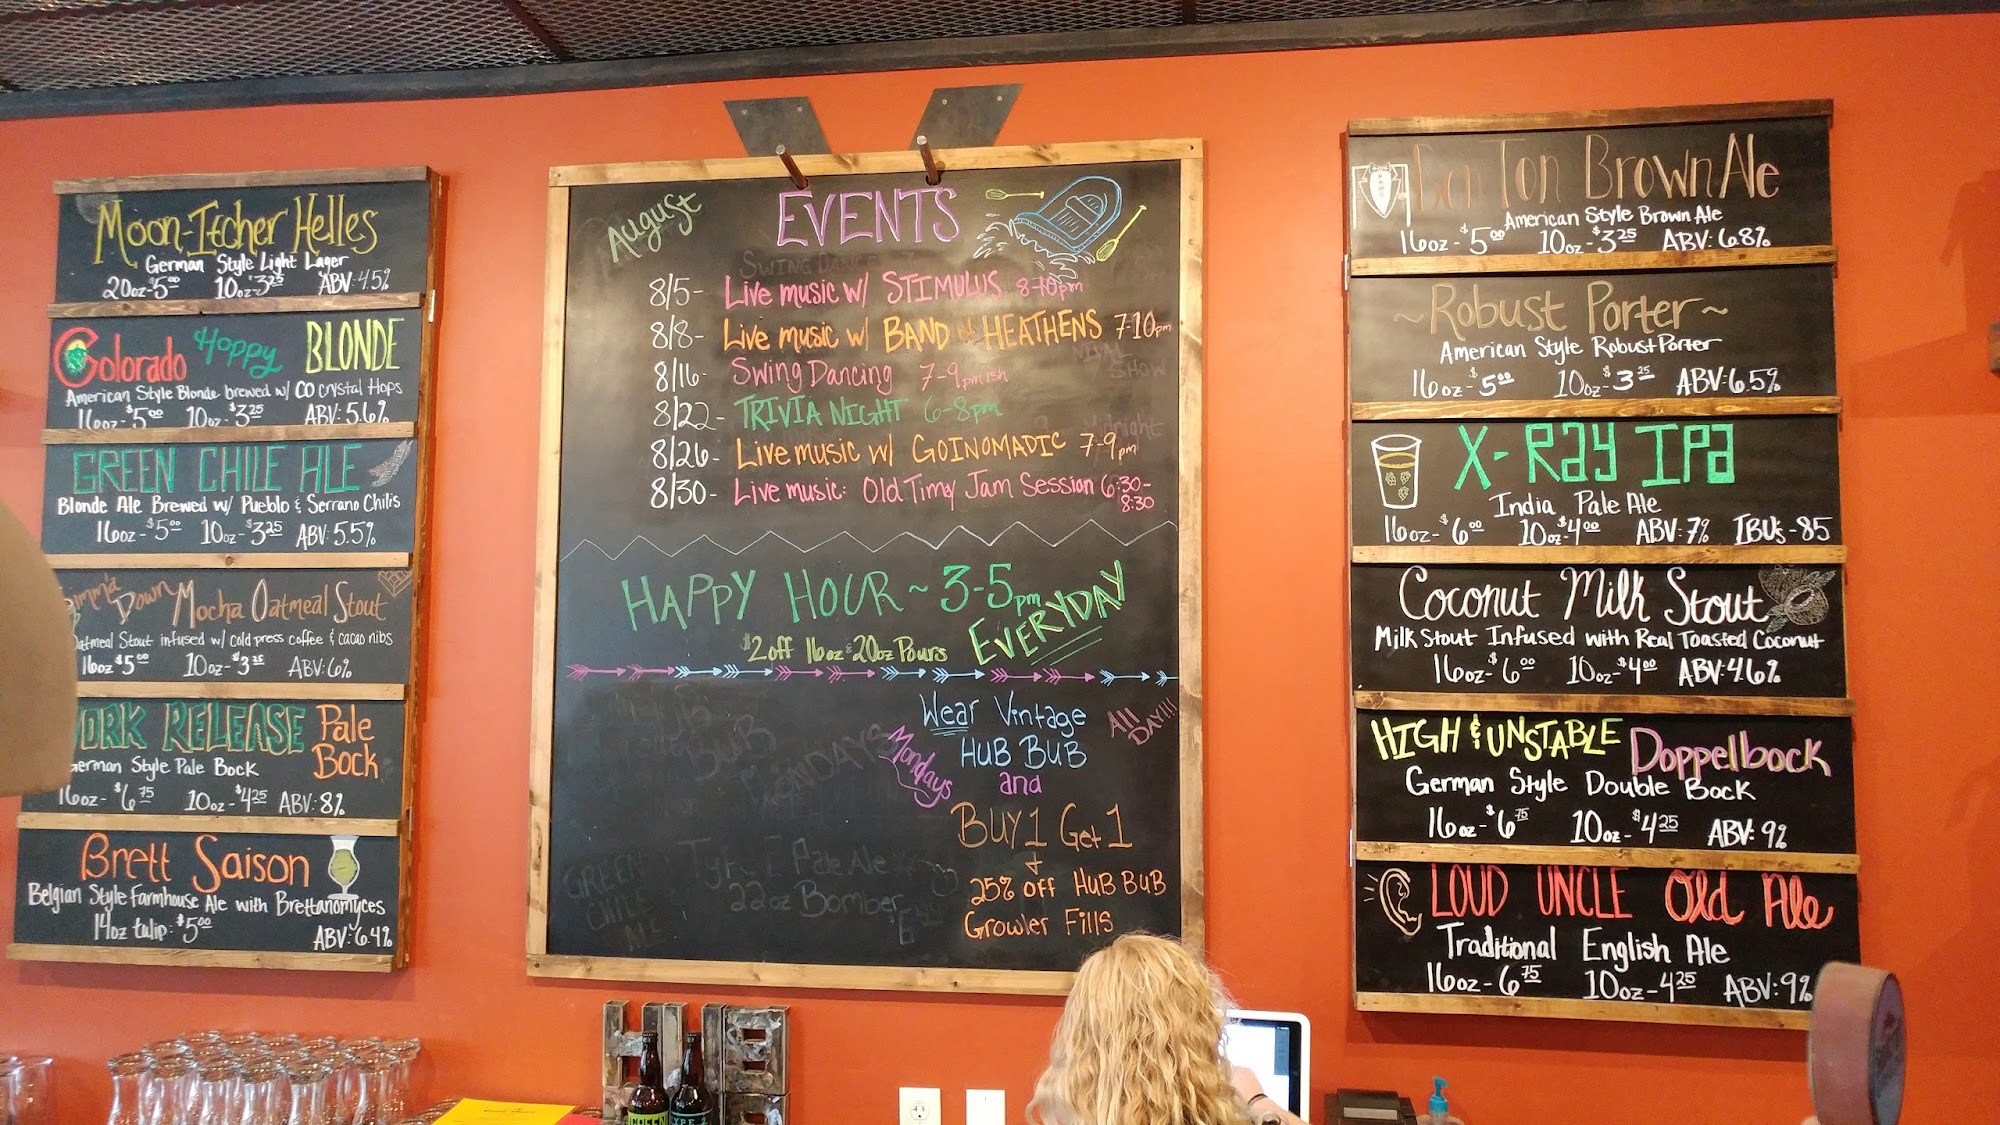 Moon-Itcher Helles
German Style Light Lager
20oz-$5.00 10oz-$3.25 ABV:4.5%
Colorado Hoppy BLONDE
American Style Blonde brewed w/ CO crystal Hops
16oz-$5.00 10oz-$3.25 ABV:5.6%
GREEN CHILE ALE
Blonde Ale Brewed w/ Pueblo & Serrano Chilis
16oz-$5.00 10oz-$3.25 ABV:5.5%
Down Mocha Oatmeal Stout
Oatmeal Stout infused w/ cold press coffee & cacao nibs
16oz $5.00 10oz-$3.25 ABV:6%
WORK RELEASE Pale Bock
German Style Pale Bock
16oz-$6.75 10oz-$4.25 ABV:8%
Brett Saison
Belgian Style Farmhouse Ale with Brettanomyces
14oz tulip: $5.00 ABV:6.4%
August EVENTS
SWING DANCE
8/5- Live music w/ STIMULUS 8-10pm
8/8- Live music w/ BAND HEATHENS 7-10pm
8/16- Swing Dancing 7-9pmish
SHOW
8/22- TRIVIA NIGHT 6-8pm
8/26- Live music w/ GOINOMADIC 7-9pm
8/30- Live music: Old Timey Jam Session 6:30-
8:30
HAPPY HOUR ~ 3-5pm
EVERYDAY
$2 off 16oz & 20oz Pours
Mondays
Wear Vintage
HUB BUB
All DAY!!!
and
BUY 1 Get 1
+
25% off HUB BUB
Growler Fills
GREEN
CHILE
ALE
Pale Ale
22oz Bomber
Ton Brown Ale
American Style Brown Ale
16oz-$5.00 10oz-$3.25 ABV:6.8%
~Robust Porter~
American Style Robust Porter
16oz-$5.00 10oz-$3.25 ABV:6.5%
X-Ray IPA
India Pale Ale
16oz-$6.00 10oz-$4.00 ABV:7% IBUs-85
Coconut Milk Stout
Milk Stout Infused with Real Toasted Coconut
16oz-$6.00 10oz-$4.00 ABV:4.6%
HIGH & UNSTABLE Doppelbock
German Style Double Bock
16oz-$6.75 10oz-$4.25 ABV:9%
LOUD UNCLE Old Ale
Traditional English Ale
16oz-6.75 10oz-4.25 ABV:9%
HUB